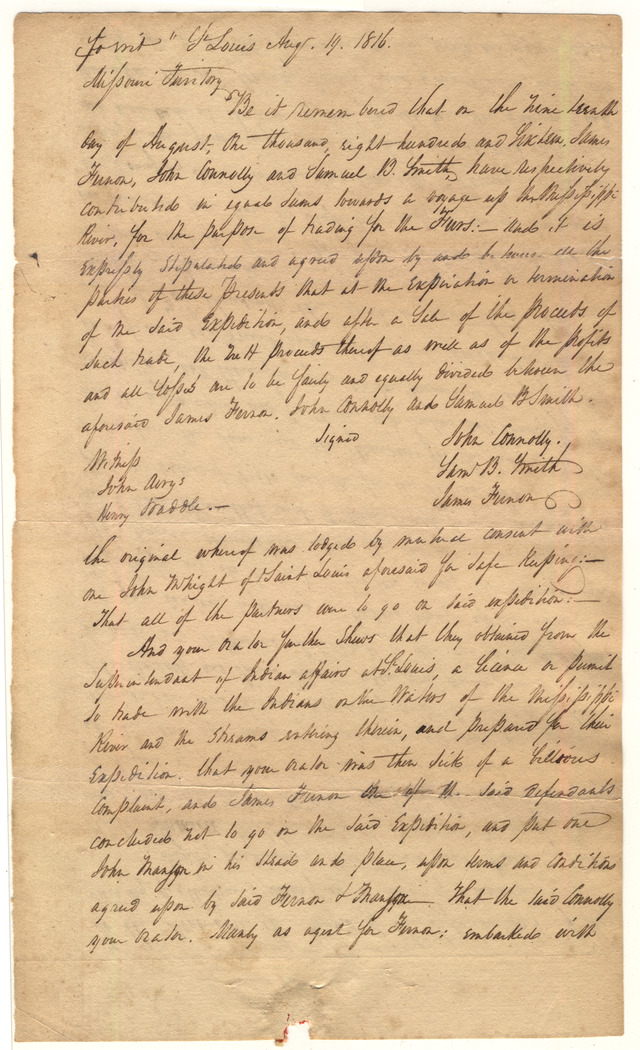 To wit " St Louis Augt. 19. 1816.
Missouri Territory
"Be it remembered that on the Nine teenth
day of August, One thousand, eight hundred and Sixteen, James
Fernon, John Connolly and Samuel B. Smith, have respectively
contributed in equal sums towards a voyage up the Mississippi
River, for the purpose of trading for the Furs:— and it is
Expressly Stipulated and agreed upon by and between all the
parties of these presents that at the Expiration or termination
of the said Expedition, and after a Sale of the proceeds of
such trade, the Nett proceeds thereof as well as of the profits
and all Losses are to be fairly and equally divided between the
aforesaid James Fernon. John Connolly and Samuel B Smith.
Signed John Connolly.
Witness Saml B. Smith
John James Fernon
Henry Waddle.—
the original whereof was lodged by mutual consent with
one John Whight of Saint Louis aforesaid for safe keeping:—
That all of the partners were to go on said expedition:—
And your Orator further Shews that they obtained from the
Superintendant of Indian affairs at St. Louis, a licence or permit
to trade with the Indians on the Waters of the Mississippi
River and the Streams entering therein, and prepared for their
Expedition. that your Orator was then Sick of a billious
Complaint, and James Fernon one of the said defendants
concluded not to go on the said Expedition, and put one
John in his stead and place, upon terms and conditions
agreed upon by said Fernon & That the said Connolly
your Orator. as agent for Fernon: embarked with